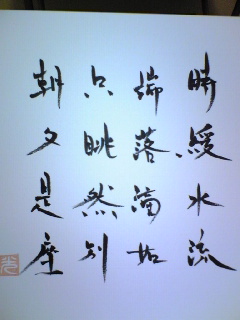 時緩水流
端落滴拓
只眺然別
朝夕是座